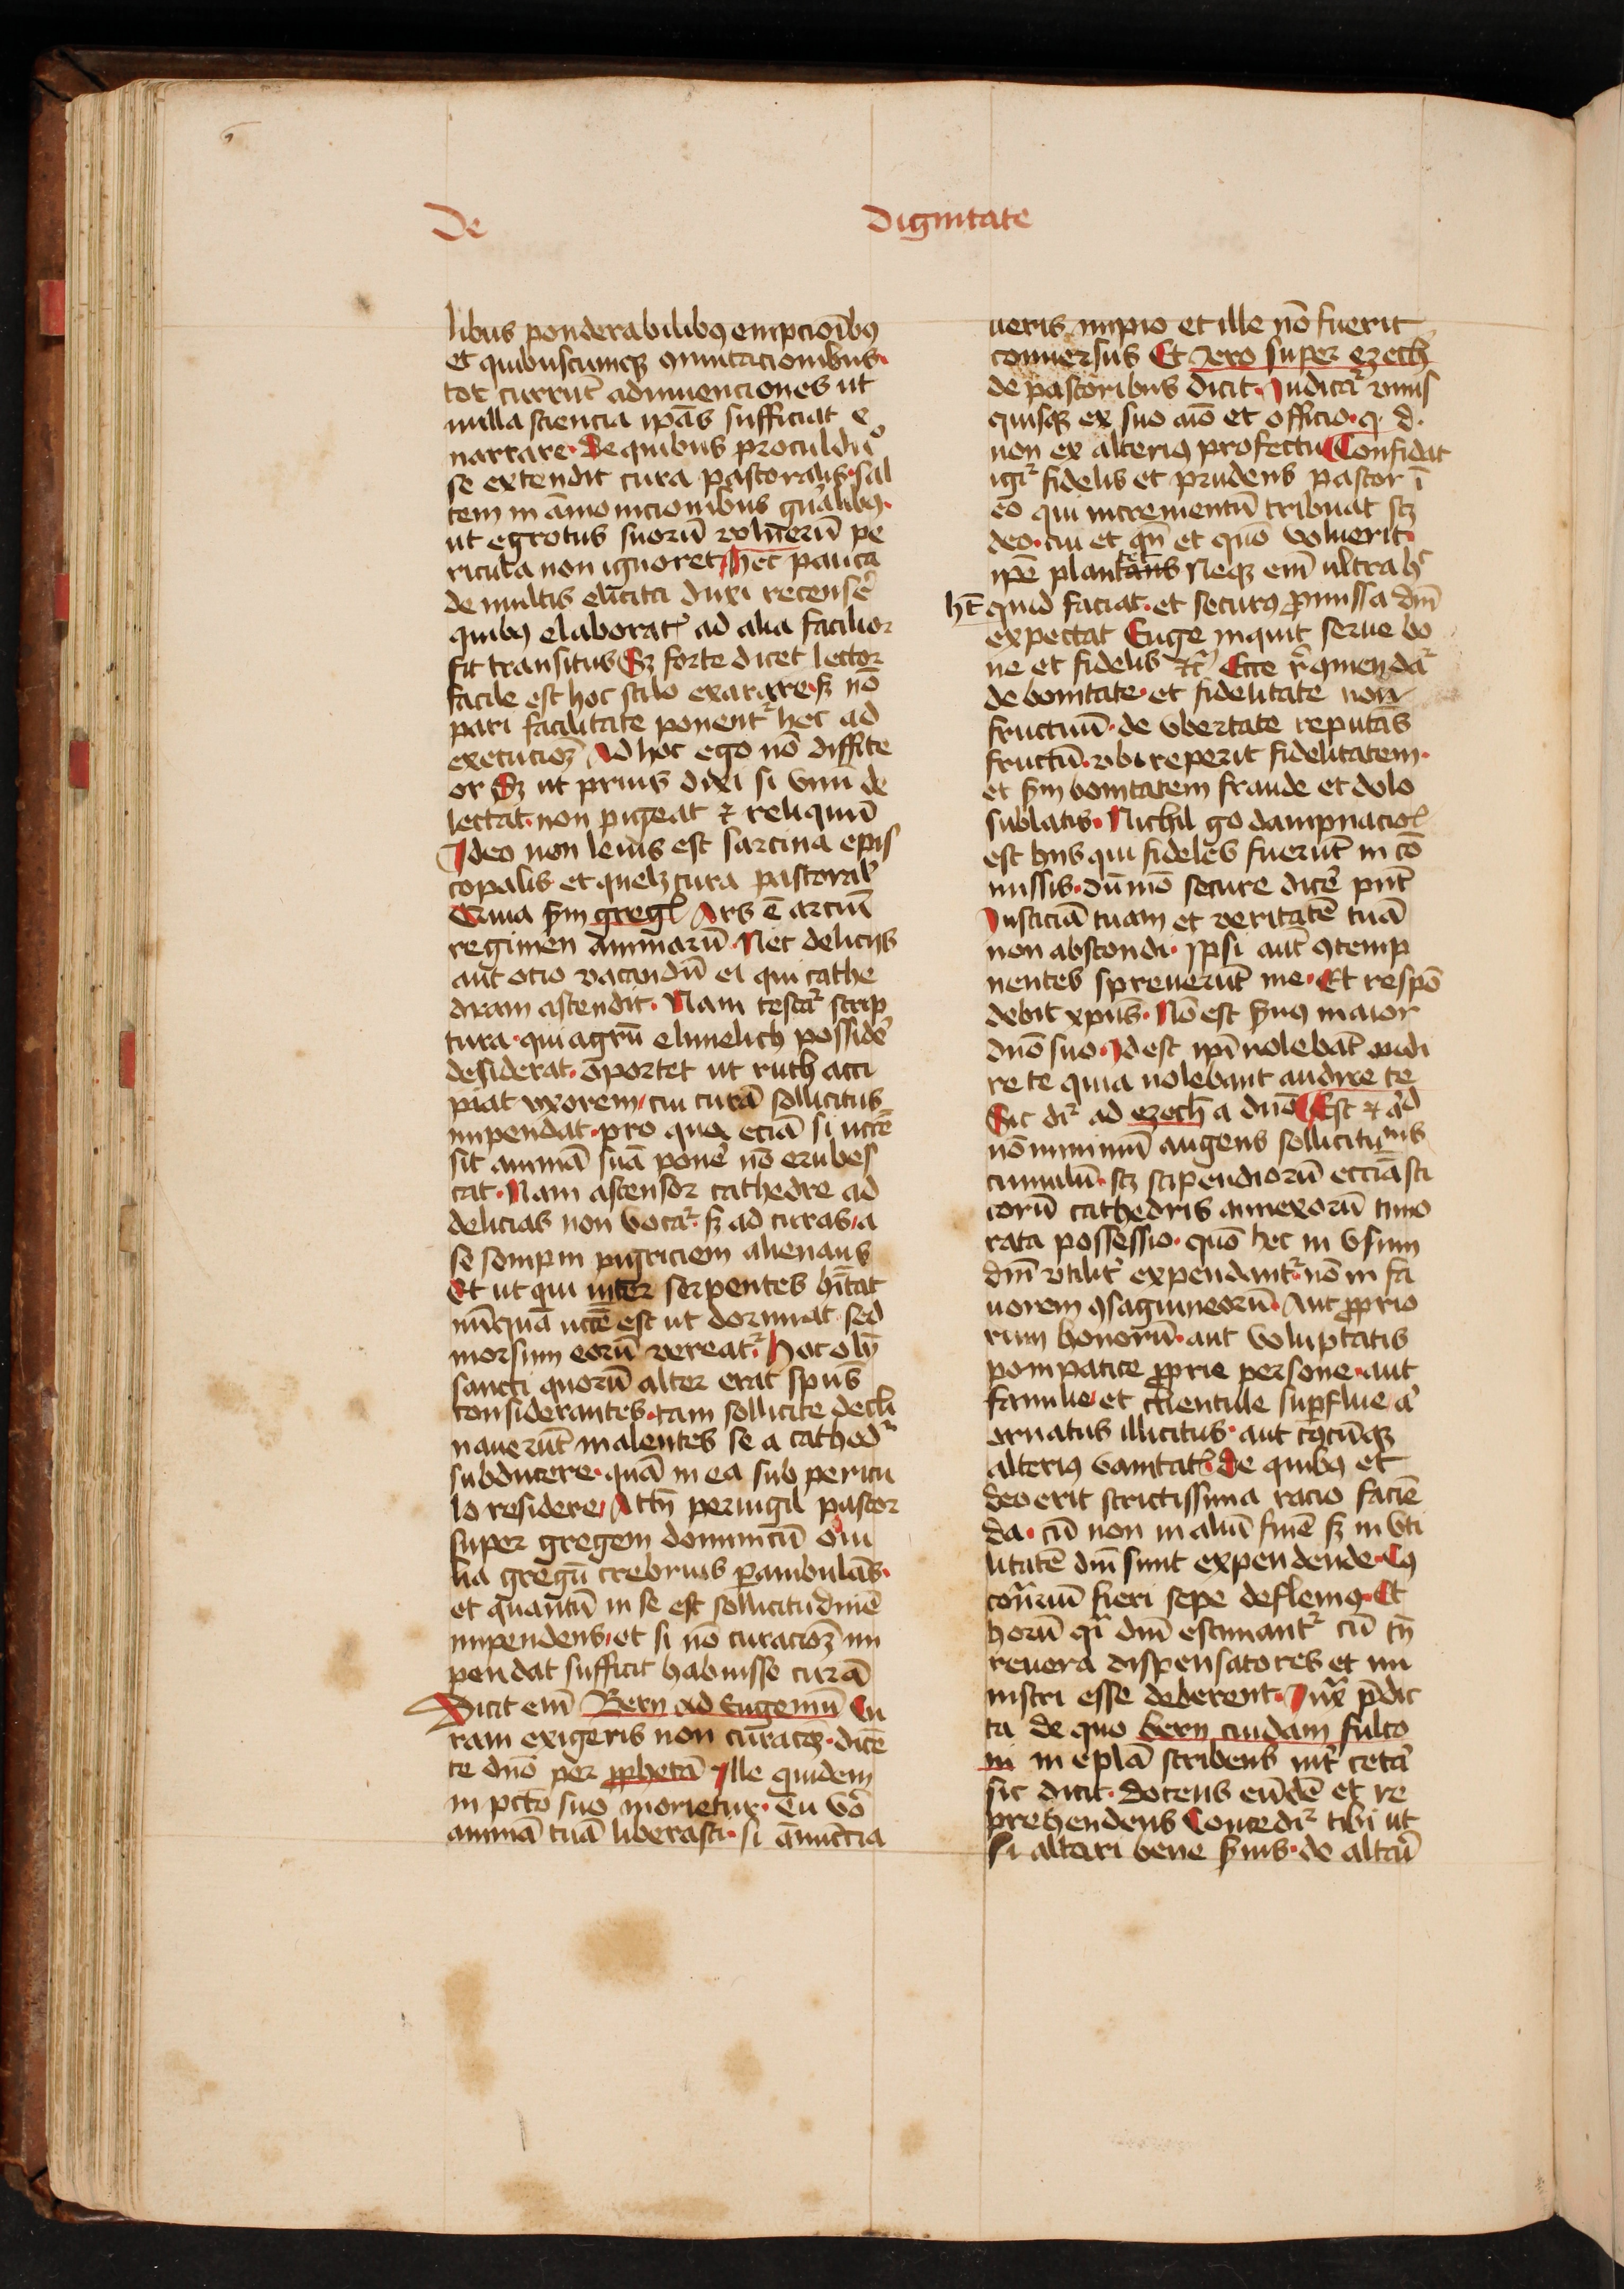 De dignitate
libus ponderabilibꝫ empcioībꝫ
et quibuscumqꝫ ꝯmutacionibus·
tot currūt adinuenciones ut
nulla sciencia ip̄as sufficiat e
narrare· De quibus proculduͦ
se extendit cura pastoralis· sal
tem in āmonicionibus gn̄alibꝫ·
ut egrotus suorū vulnerū pe
ricula non ignoret Hec pauca
de multis elicita duxi recensē
quibꝫ elaborat᷑ ad alia facilior
fit transitus Sꝫ forte dicet lector
facile est hoc stilo exarare· sꝫ nō
pari facilitate ponent᷑ hec ad
execucioꝫ Ad hoc ego nō diffite
or Sꝫ ut prius dixi si vnū de
lectat· non pigeat ⁊ reliquū
Ideo non leuis est sarcina epis
copalis et quelꝫ cura pastoral᷑
Quia ẜm greg᷑ Ars ē arciū
regimen animarū Nec delicijs
aut ocio vacandū ei qui cathe
dram ascendit· Nam testat᷑ scrip
tura· qui agrū elimelech possidē
desiderat· oportet ut ruth acci
piat vxorem/ cui curā sollicitus
impendat· pro qua eciā si necē
sit animā suā ponē nō erubes
cat· Nam ascensor cathedre ad
delicias non vocat᷑· sꝫ ad curas/ a
se sompni pigriciem alienans
Et ut qui inter serpentes hītat
nūquā necē est ut dormiat sed
morsum eorū vereat᷑· Hoc olī
sancti quorū alter erat spūs
considerantes· tam sollicite decli
nauerūt malentes se a cathed᷑
subducere· quā in ea sub pericu
lo residere/ Attn̄ peruigil pastor
super gregem dominicū oui
lia gregū crebrius ꝑambulās·
et quantū in se est sollicitudinē
impendens/ et si nō curacioꝫ im
pendat sufficit habuisse curā
Dicit em̄ Bern ad Eugeniū Cu
ram exigeris non curacōꝫ· dicē
te dn̄o per ꝓphetā Ille quidem
in pctō suo morietur· Tu vō
animā tuā liberasti· si ānūcia
ueris impio et ille nō fuerit
conuersus Et Jero super ezech
de pastoribus dicit· Iudicat᷑ vnus
quisqꝫ ex suo aīo et officio· q· d·
non ex alterius profectu Confidat
igit᷑ fidelis et prudens pastor ī
eo qui incrementū tribuat scꝫ
deo· cui et qn̄ et quō voluerit·
ip̄e plantans Neqꝫ em̄ ultra hͨ
ht̄ quid faciat· et securꝫ ꝓmissa dn̄i
expectat Euge inquit serue bo
ne et fidelis ⁊c᷑ Ecce r̄ ꝯmendat᷑
de bonitate· et fidelitate non
fructuū· de vbertate reputās
fructū· vbi reperit fidelitatem·
et ẜm bonitatem fraude et dolo
sublatis· Nichil go dampnacio᷑
est hijs qui fideles fuerūt in cō
missis· dūmō secure dicē pn̄t
Iusticiā tuam et veritatē tuā
non abscondi· Ipsi aut̄ ꝯtemp
nentes spreuerūt me· Et respō
debit xp̄us· Nō est ẜuꝫ maior
dn̄o suo· Id est ip̄i nolebāt audi
re te quia nolebant audire te
Sic dr᷑ ad ezech a dn̄o Est ⁊ ad
nō minimū augens sollicitu
cumulū· scꝫ stipendiorū eccāsti
corū cathedris annexorū timo
rata possessio· quō hec in vsum
dn̄i vtilit᷑ expendant᷑· nō in fa
uorem ꝯsaguineorū· Aut ꝓprio
rum honorū· aut voluptatis
pompatice ꝓprie persone· aut
familie/ et clientule suꝑflue/ a᷑
ornatus illicitus· aut cꝯcūqꝫ
alterius vanitat᷑· De quibꝫ et
deo erit strictissima racio faciē
da· cū non in aliū finē sꝫ in vti
litatē dn̄i sunt expendende· Cꝯ
cōt᷑riū fieri sepe deflemꝫ· Et
horū qͥ dn̄i estimant᷑ cū tn̄
reuera dispensatores et mi
nistri esse deberent· Iuxͣ p̄dic
ta de quo bern cuidam fulco
ni in ep̄lā scribens int᷑ cetā
sic dicit· Docens eūdē et re
prehendens Concedit᷑ tibi ut
si altari bene ẜuis· de altari